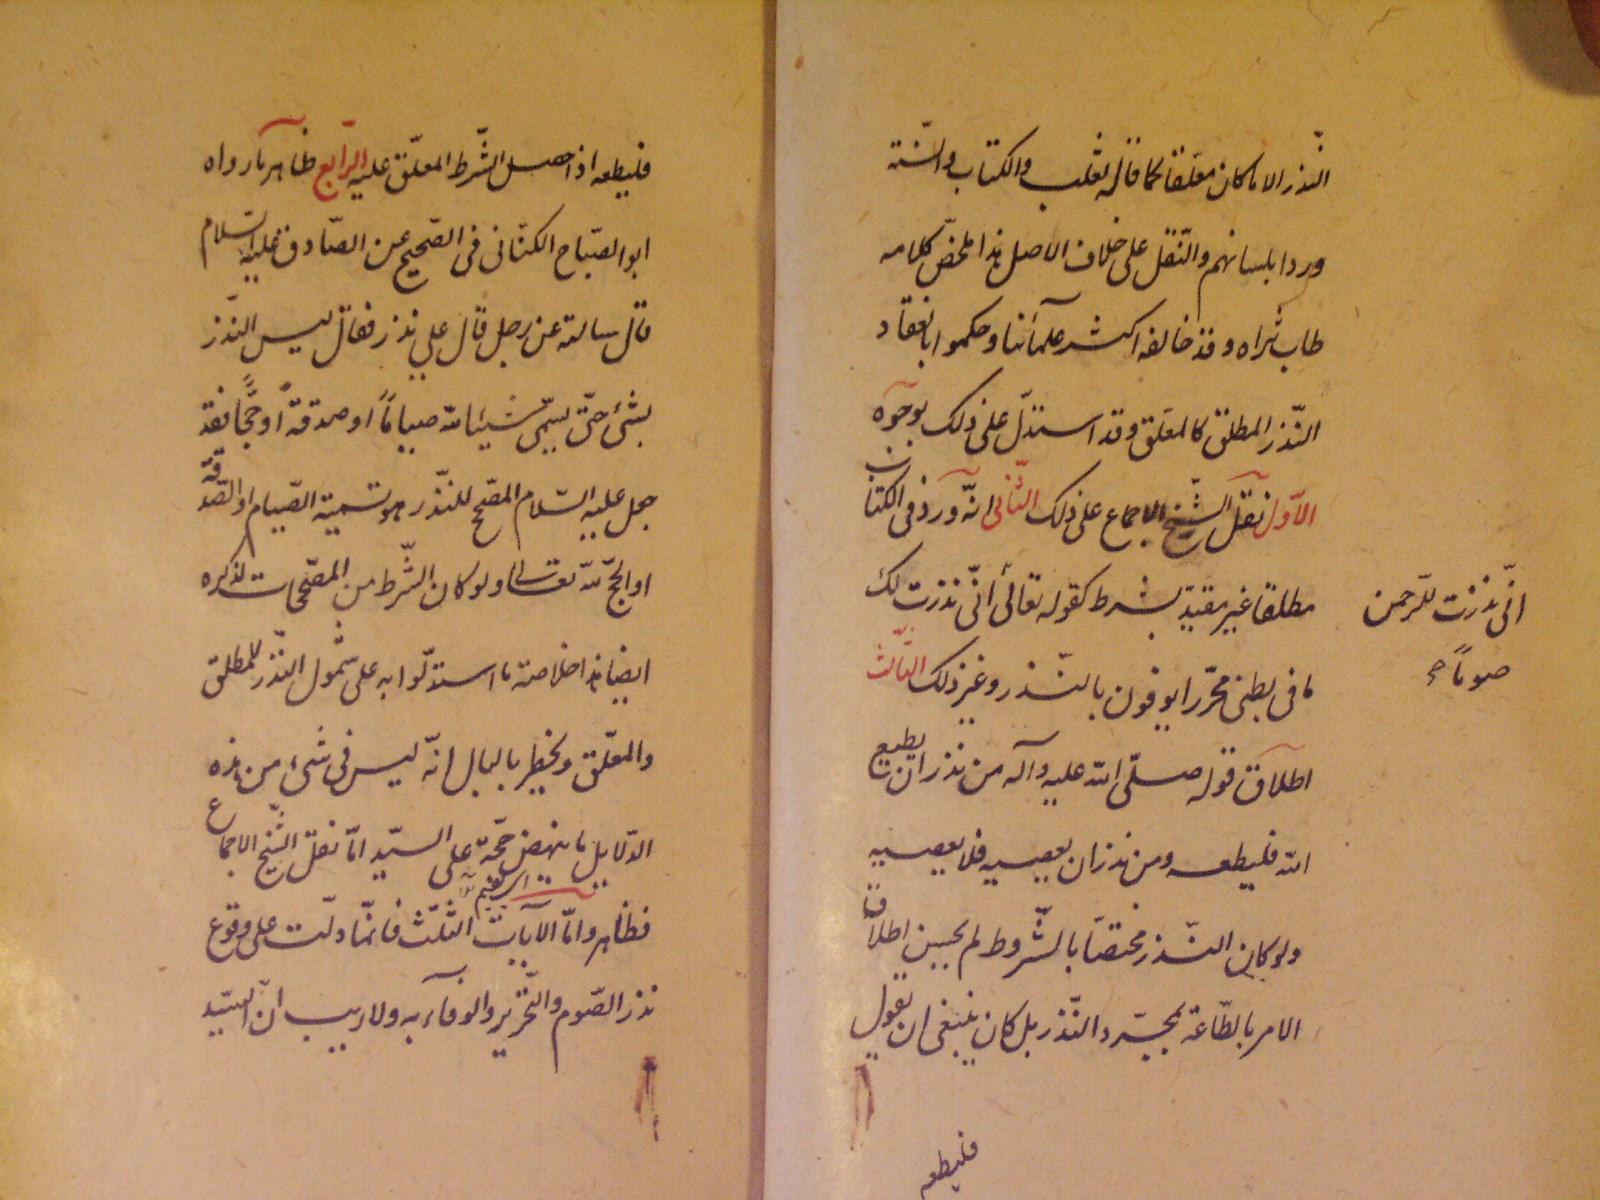 النّذر الا ما كان معلّقا كما قاله ثعلب والكتاب والسّنّة
وردا بلسانهم والنّقل على خلاف الاصل هذا ملخّص كلامه
طاب ثراه وقد خالفه اكثر علمآئنا وحكموا بانعقاد
النّذر المطلق كالمعلّق وقد استدلّ على ذلك بوجوه
الاوّل نقل الشّيخ الاجماع على ذلك الثّانى انّه ورد فى الكتاب
مطلقا غير مقيّد بشرط كقوله تعالى انّى نذرت لك
انّى نذرت للرّحمن
صوماً صح
ما فى بطنى محرّرا يوفون بالنّذر وغير ذلك الثّالث
اطلاق قوله صلّى الله عليه وآله من نذر ان يطيع
الله فليطعه ومن نذر ان يعصيه فلا يعصيه
ولو كان النّذر مختصّا بالشّروط لم يحسن اطلاق
الامر بالطّاعة بمجرّد النّذر بل كان ينبغى ان يقول
فليطعه
فليطعه اذا حصل الشّرط المعلّق عليه الرّابع ظاهر ما رواه
ابو الصّباح الكنّانى فى الصّحيح عن الصّادق عليه السّلام
قال سالته عن رجل قال علي نذر فقال ليس النّذر
بشئ حتّى يسمّى شيئا لله صياماً او صدقةً او حجًّا فقد
جعل عليه السّلام المصّحح للنّذر هو تسمية الصّيام او الصّدقة
او الحجّ لله تعالى ولو كان الشّرط من المصّححات لذكره
ايضا هذا خلاصة ما استدلّوا به على شمول النّذر للمطلق
والمعلّق ويخطر بالبال انّه ليس فى شئ من هذه
الدّلايل ما ينهض حجّة على السيّد امّا نقل الشّيخ الاجماع
فظاهر وامّا الآيات الثّلث فانمّا دلّت على وقوع
نذر الصّوم والتّحرير والوفآء به ولا ريب انّ السّيّد